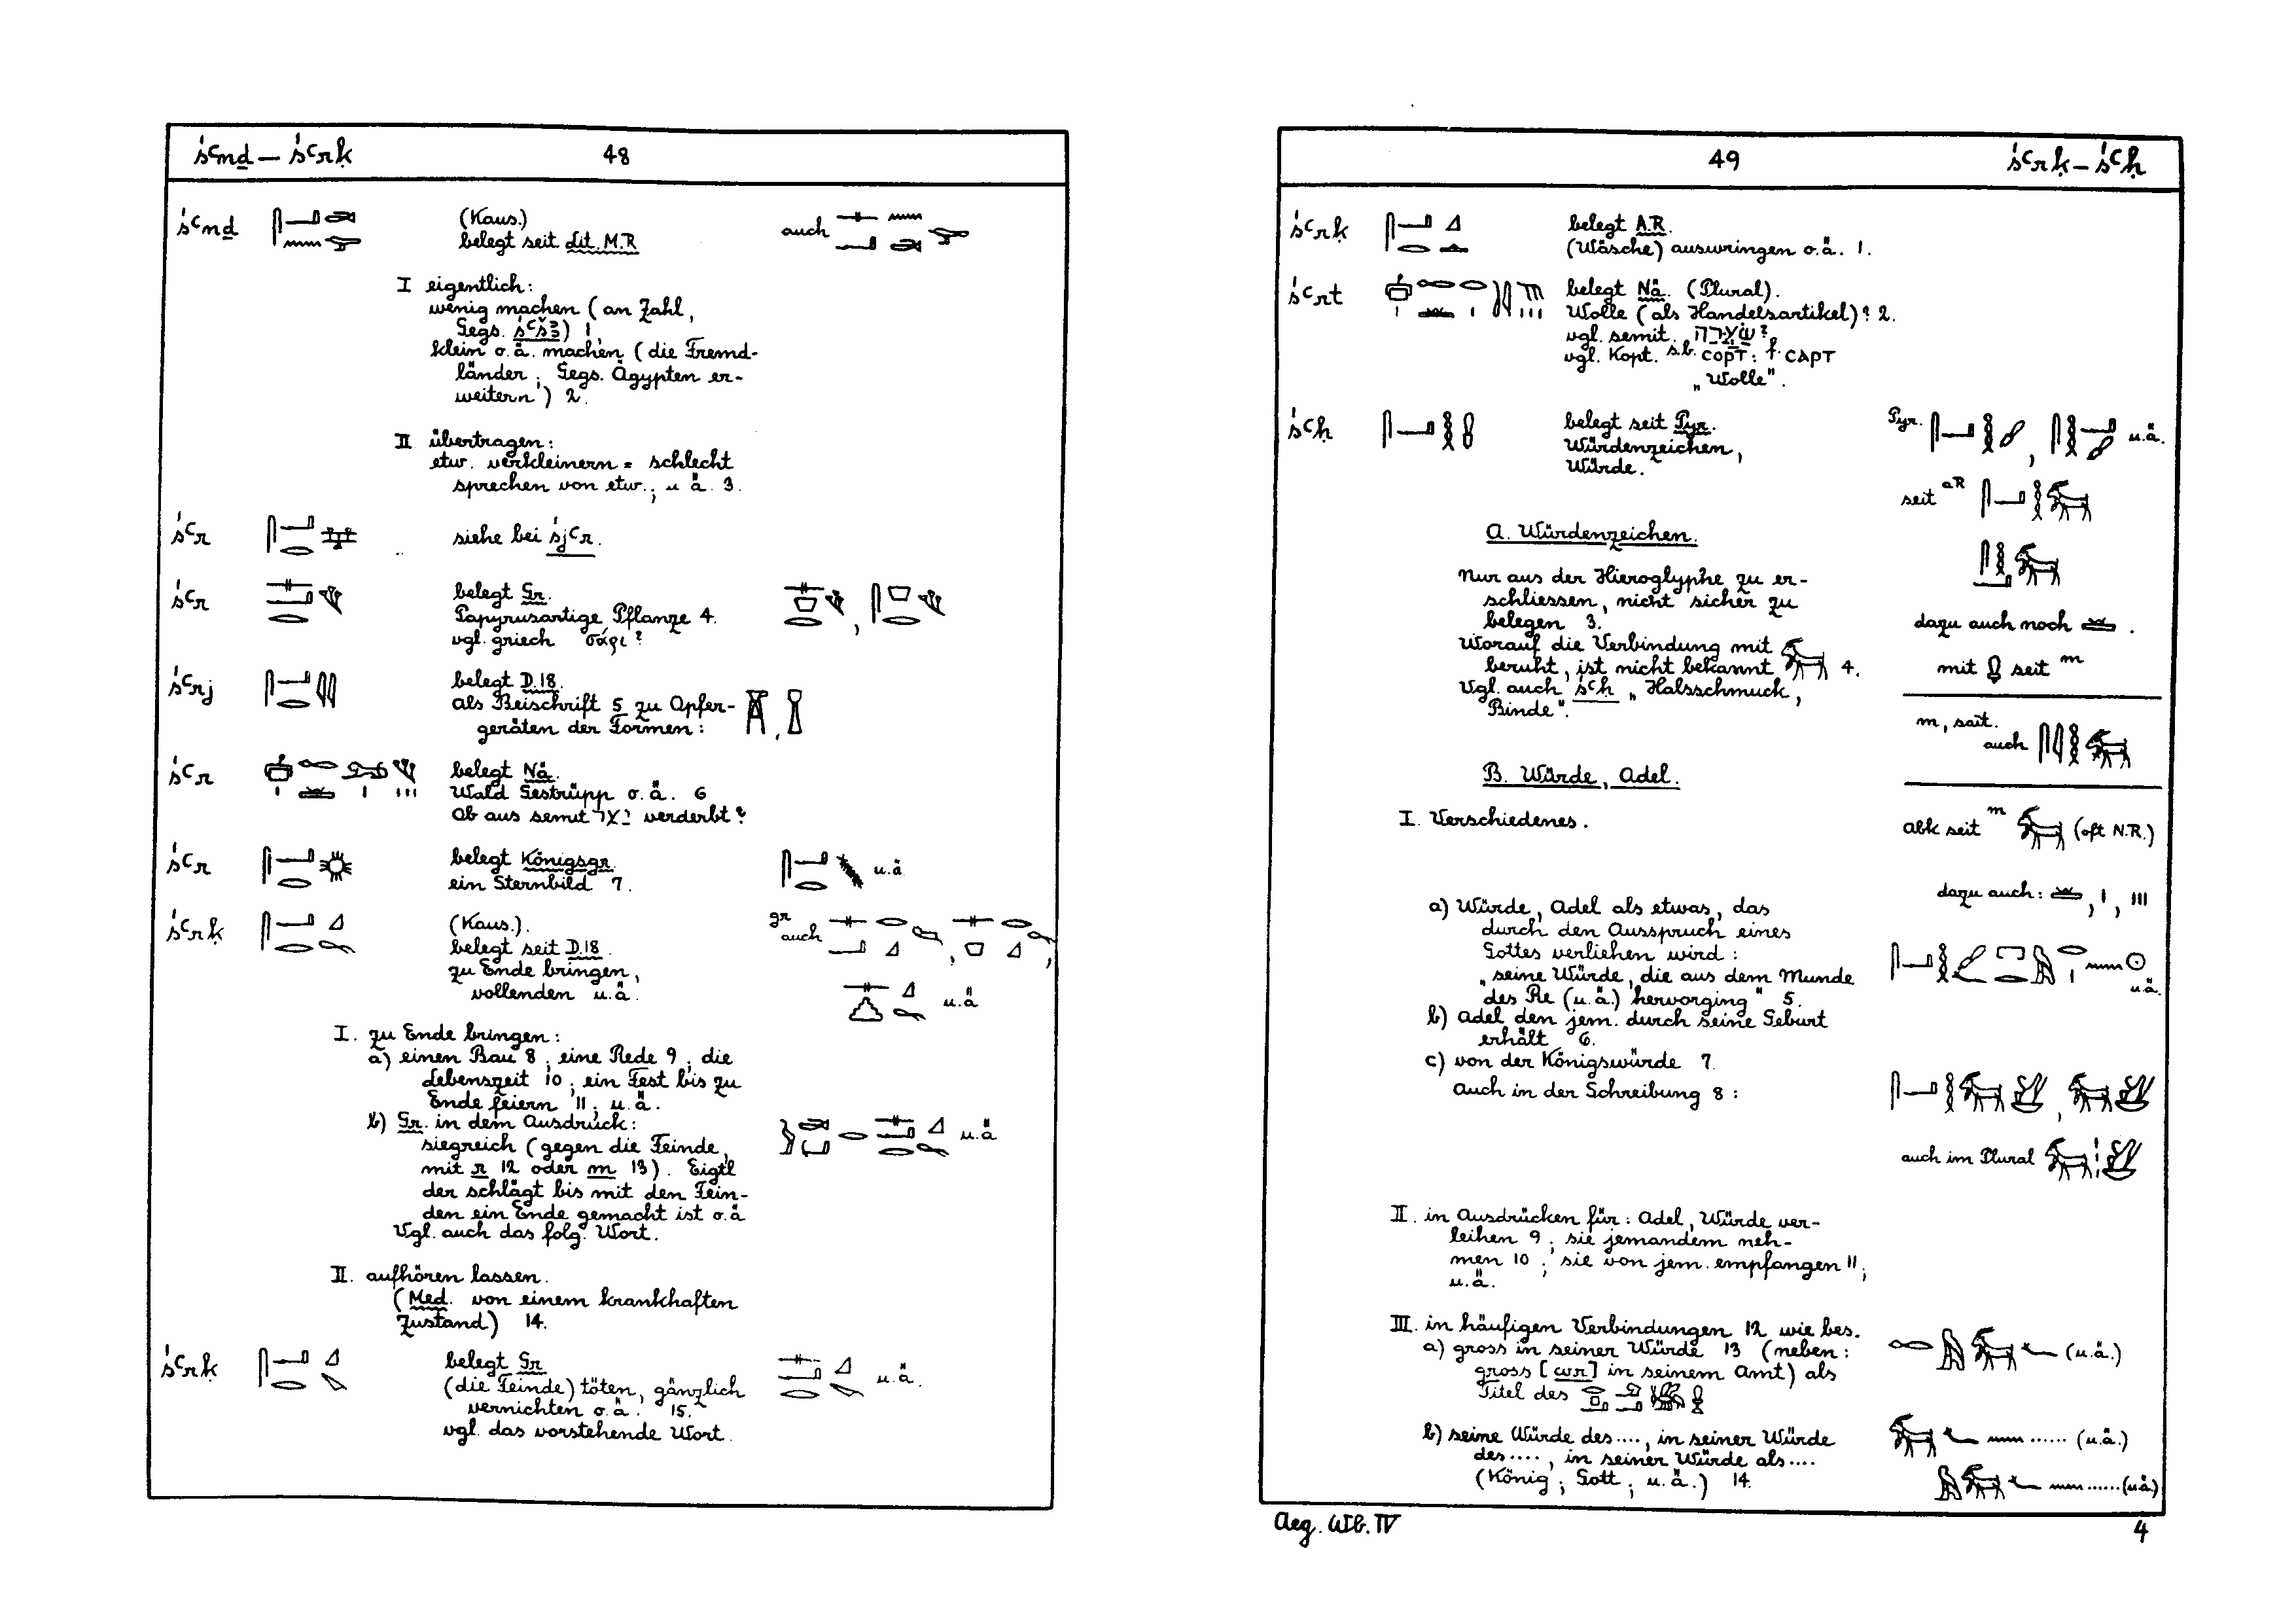 śꜥnḏ — śꜥrḳ 48
śꜥnḏ (Kaus.) auch
belegt seit Lit. M.R
I eigentlich:
wenig machen (an Zahl,
Gegs. śꜥšꜣ) 1
klein o.ä. machen (die Fremd-
länder; Gegs. Ägypten er-
weitern) 2.
II übertragen:
etw. verkleinern = schlecht
sprechen von etw.; u ä. 3.
śꜥr siehe bei śjꜥr.
śꜥr belegt Gr.
Papyrusartige Pflanze 4.
vgl. griech σάρι?
śꜥrj belegt D.18.
als Beischrift 5 zu Opfer-
geräten der Formen:
śꜥr belegt Nä.
Wald Gestrüpp o.ä. 6
Ob aus semit יער verderbt?
śꜥr belegt Königsgr. u.ä
ein Sternbild 7.
śꜥrḳ (Kaus.). gr auch
belegt seit D.18.
zu Ende bringen,
vollenden u.ä. u.ä
I. zu Ende bringen:
a) einen Bau 8; eine Rede 9; die
Lebenszeit 10; ein Fest bis zu
Ende feiern 11; u.ä.
b) Gr. in dem Ausdruck: u.ä
siegreich (gegen die Feinde,
mit r 12 oder m 13). Eigtl
der schlägt bis mit den Fein-
den ein Ende gemacht ist o.ä
Vgl. auch das folg. Wort.
II. aufhören lassen.
(Med. von einem krankhaften
Zustand) 14.
śꜥrḳ belegt Gr u.ä.
(die Feinde) töten, gänzlich
vernichten o.ä. 15.
vgl. das vorstehende Wort.
49 śꜥrḳ — śꜥḥ
śꜥrḳ belegt A.R.
(Wäsche) auswringen o.ä. 1.
śꜥrt belegt Nä. (Plural).
Wolle (als Handelsartikel)? 2.
vgl. semit. שׂערה?
vgl. Kopt. s.b. ⲥⲟⲣⲧ: f. ⲥⲁⲣⲧ
„Wolle".
śꜥḥ belegt seit Pyr. Pyr. , u.ä.
Würdenzeichen,
Würde.
seit aR
A. Würdenzeichen.
Nur aus der Hieroglyphe zu er-
schliessen, nicht sicher zu
belegen 3. dazu auch noch .
Worauf die Verbindung mit
beruht, ist nicht bekannt 4. mit seit m
Vgl. auch śꜥḥ „Halsschmuck,
Binde".
m, sait.
auch
B. Würde, Adel.
I. Verschiedenes. abk seit m (oft N.R.)
dazu auch: , I, III
a) Würde, Adel als etwas, das
durch den Ausspruch eines
Gottes verliehen wird:
„seine Würde, die aus dem Munde
des Re (u.ä.) hervorging" 5. u.ä.
b) Adel den jem. durch seine Geburt
erhält 6.
c) von der Königswürde 7.
auch in der Schreibung 8:
auch im Plural
II. in Ausdrücken für: Adel, Würde ver-
leihen 9; sie jemandem neh-
men 10; sie von jem. empfangen 11;
u.ä.
III. in häufigen Verbindungen 12 wie bes.
a) gross in seiner Würde 13 (neben: (u.ä.)
gross [wr] in seinem Amt) als
Titel des
b) seine Würde des...., in seiner Würde ...... (u.ä.)
des...., in seiner Würde als....
(König; Gott; u.ä.) 14. ......(u.ä.)
Aeg. Wb. IV 4